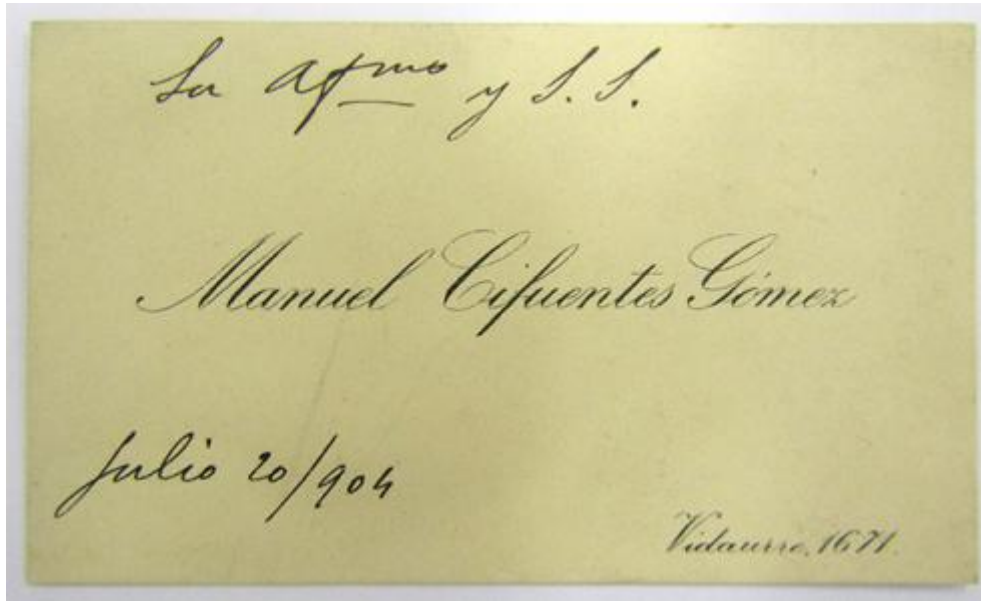 Su afmo y S. S.
Manuel Cifuentes Gómez
Julio 20/904
Vidaurre, 1671.